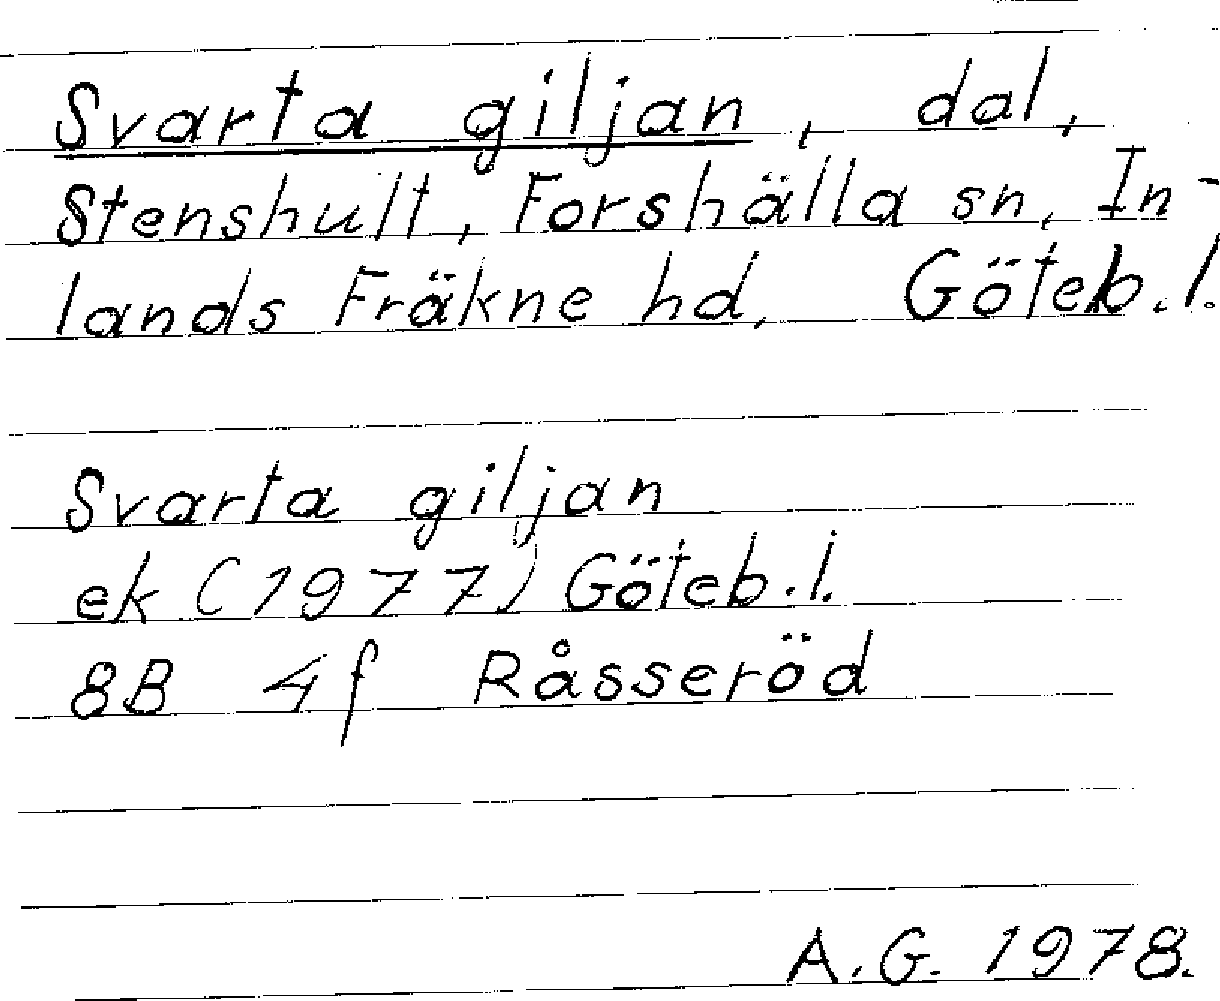 Svarta giljan, dal,
Stenshult, Forshälla sn, In-
lands Fräkne hd, Göteb. l.
Svarta giljan
ek (1977) Göteb. l.
8B 4f Råsseröd
A.G. 1978.